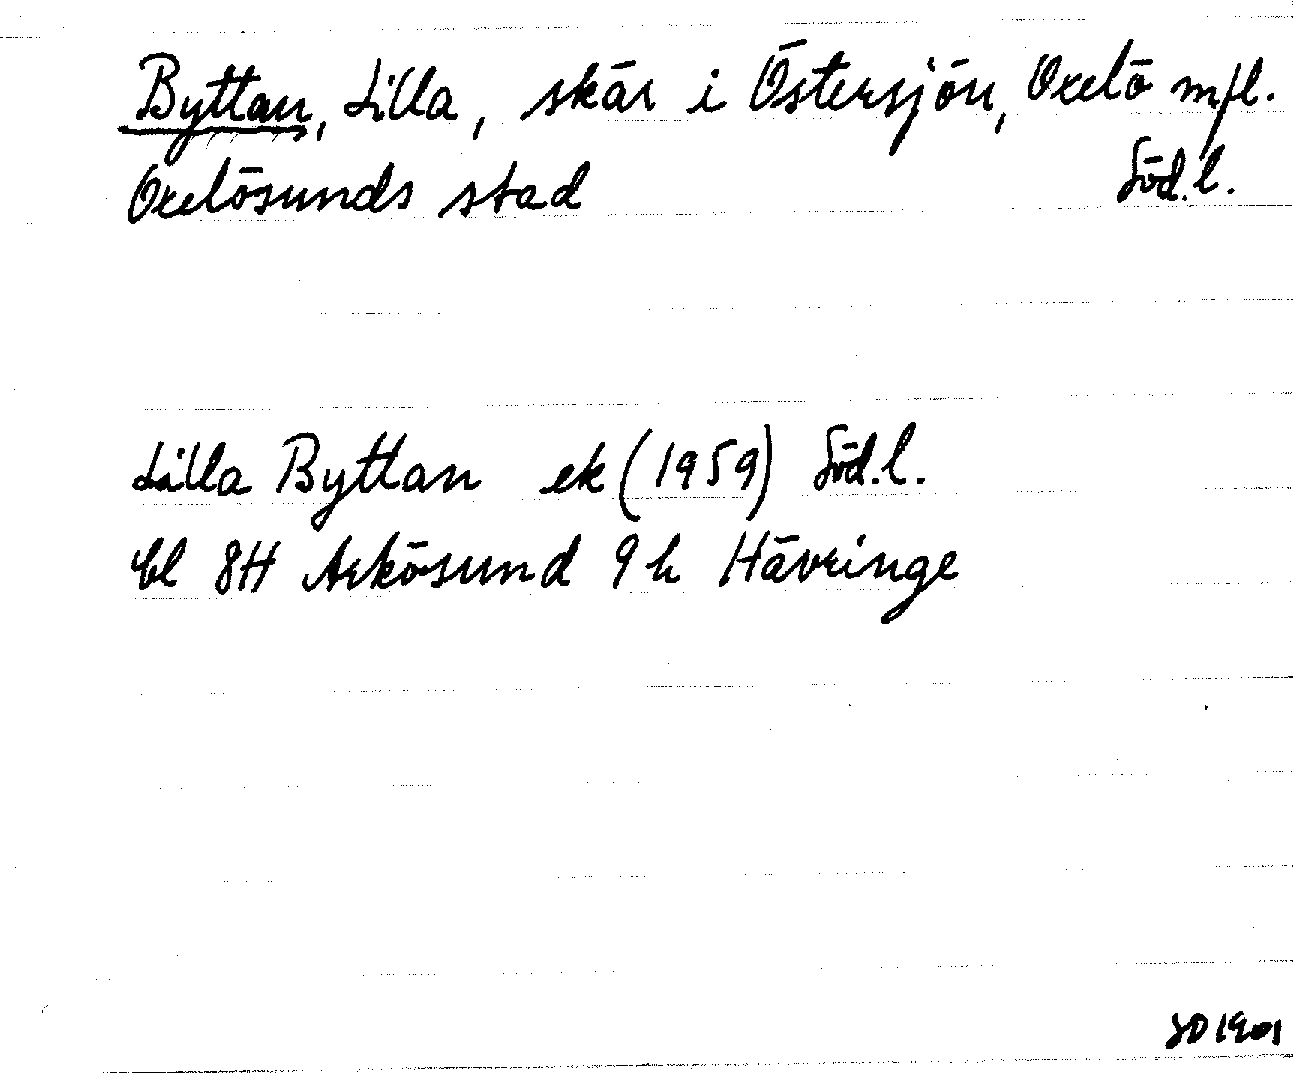 Byttan, Lilla, skär i Östersjön, Oxelö mfl.
Oxelösunds stad Söd.l.
Lilla Byttan ek (1959) Söd.l.
bl 8H Arkösund 9 h Hävringe